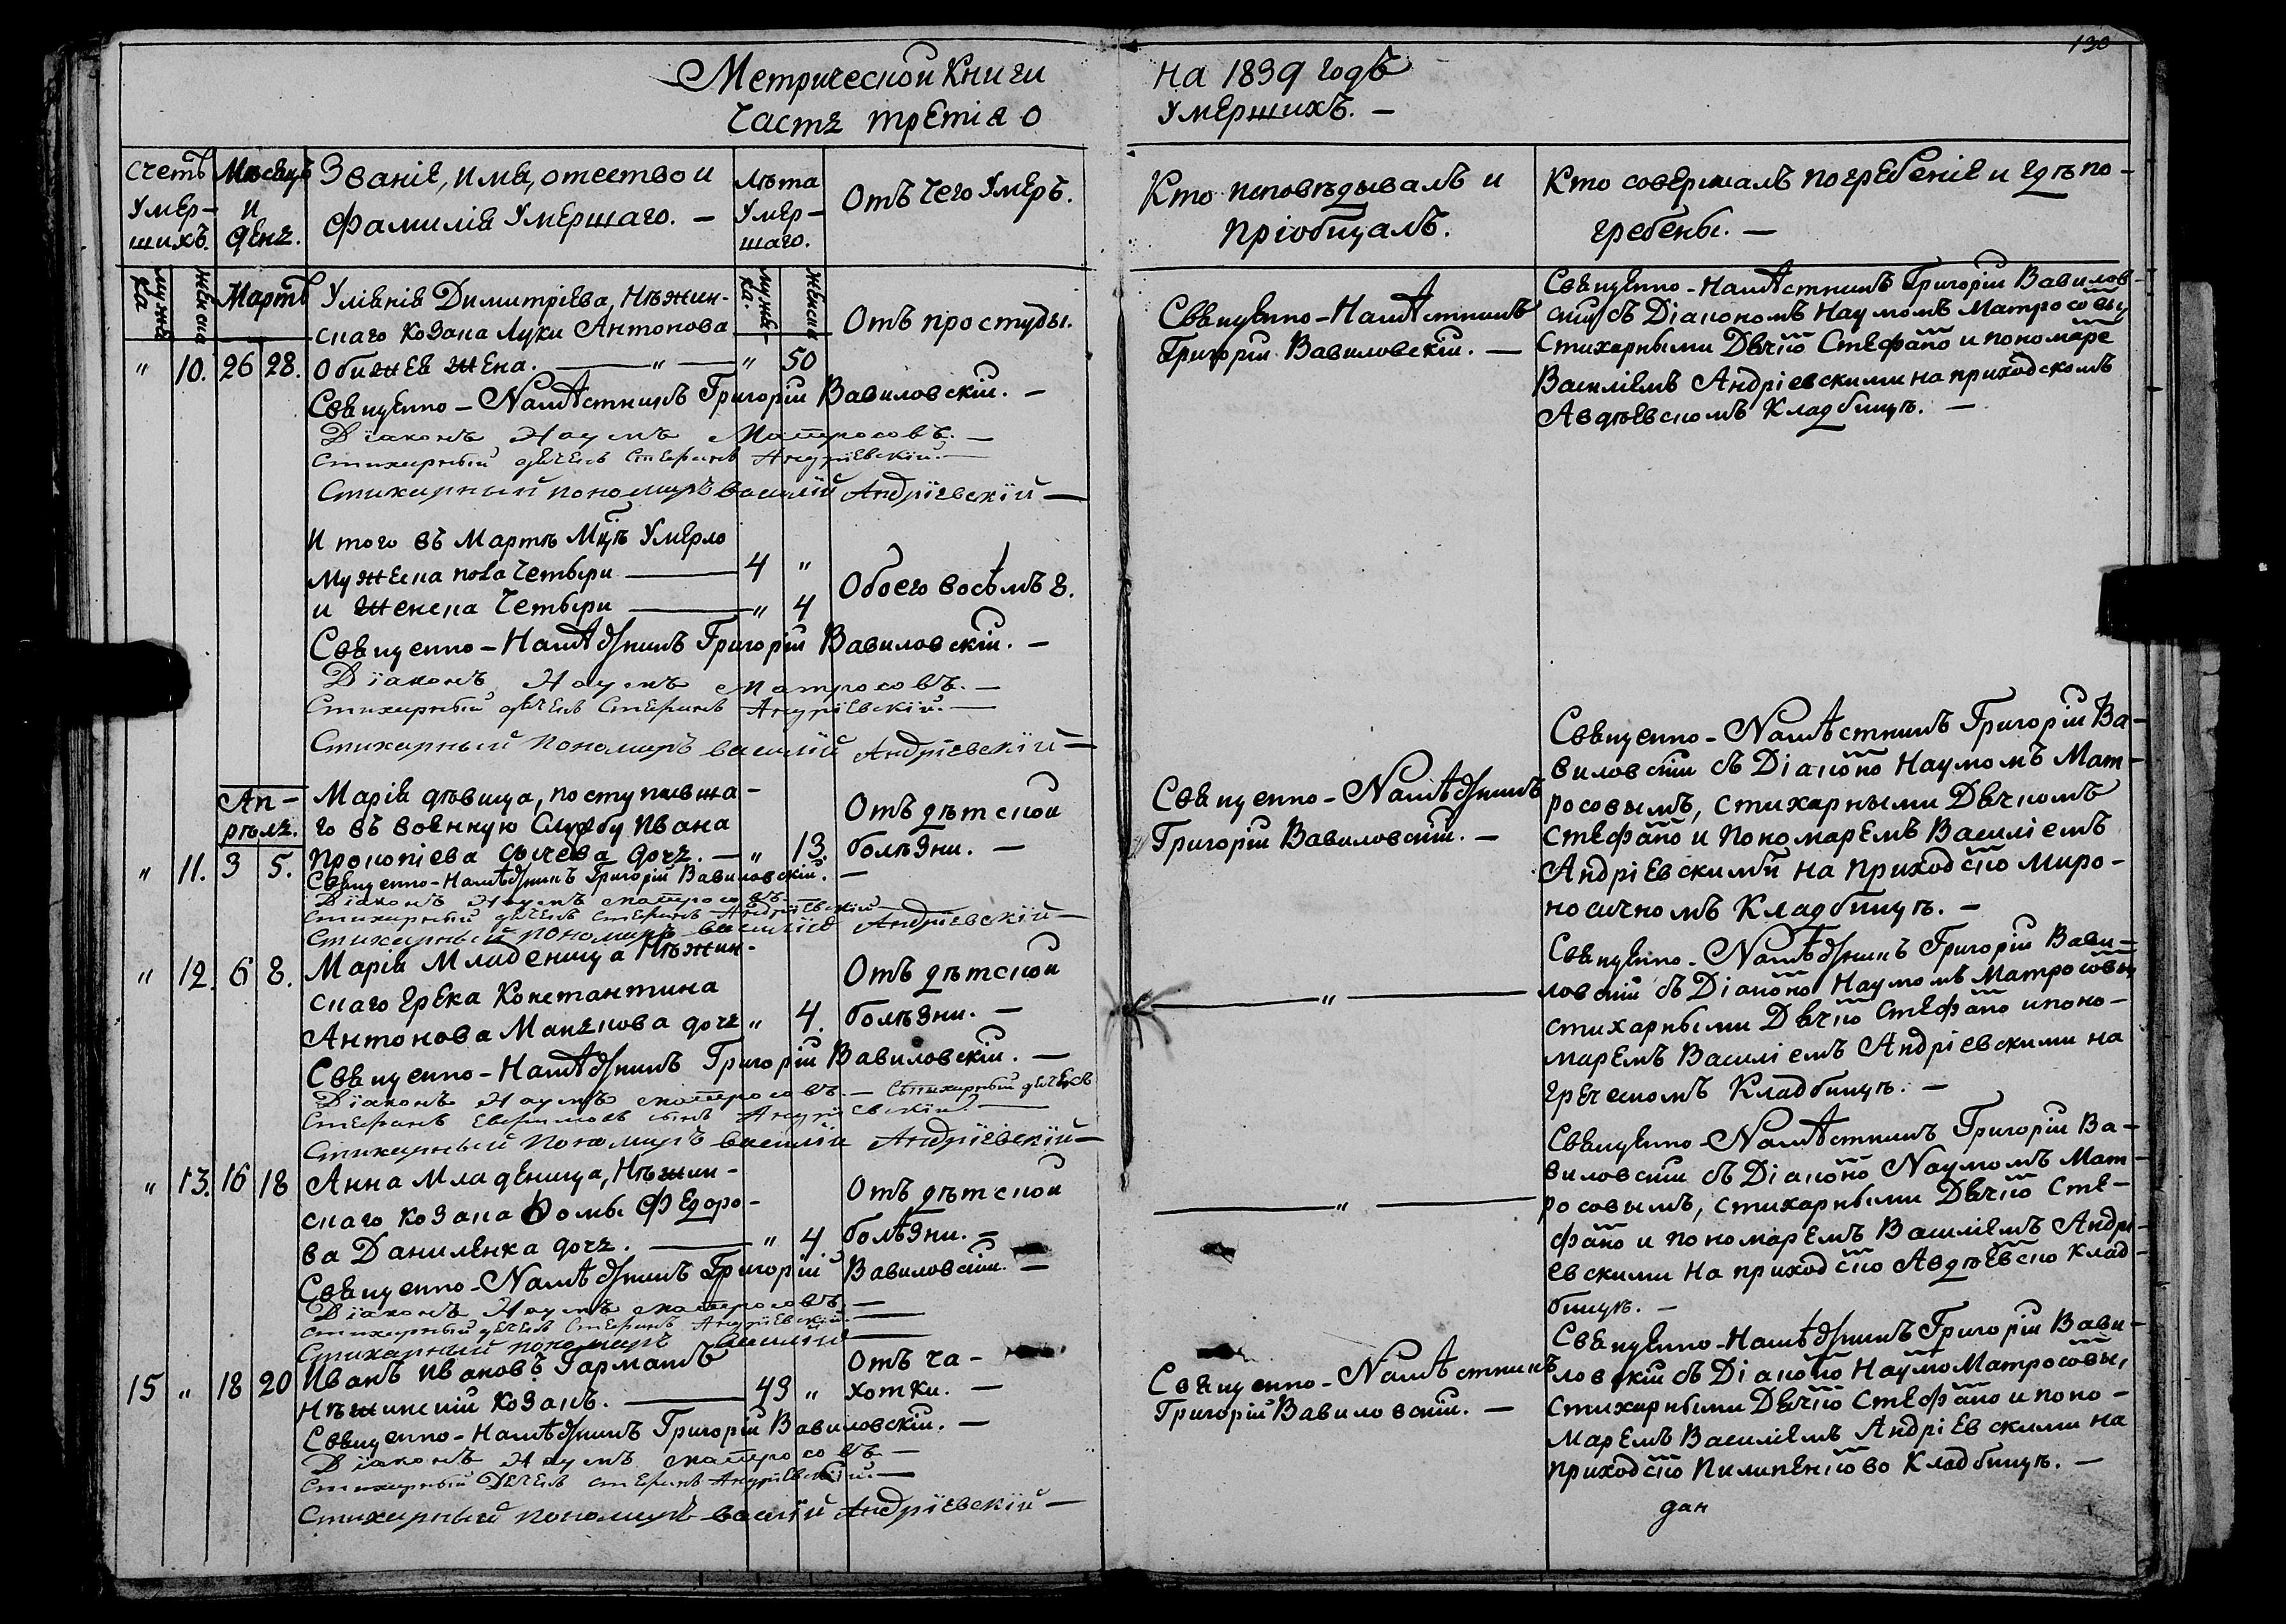 130
Метрической Книги на 1839 годъ
Часть третія о Умершихъ. —
Счетъ Умершихъ.
Мѣсяцъ и День.
Званіе, имя, отчество и
фамилія Умершаго. —
Лѣта Умершаго.
Отъ чего Умеръ.
Кто исповѣдывалъ и
пріобщалъ.
Кто совершалъ погребеніе и гдѣ по-
гребены. —
Мартъ
Уліянія Димитріева, Нѣжин-
скаго козака Луки Антонова
" 10. 26 28. Обижея Жена. — " — " 50
Отъ простуды.
Священно-Намѣстникъ
Григорій Вавиловскій. —
Священно-Намѣстникъ Григорій Вавилов-
скій съ Діакономъ Наумомъ Матросовы
Стихарными Дячко Стефано и пономаре
Василіемъ Андріевскими на приходскомъ
Авдѣевскомъ Кладбищѣ. —
Священно-Намѣстникъ Григорій Вавиловскій. —
Діаконъ Наумъ Матросовъ. —
Стихарный дячекъ Стефанъ Андріевскій. —
Стихарный пономарь Василій Андріевскій —
И того въ Мартѣ Мцѣ Умерло
Мужеска пола Четыри — 4 "
и Женска Четыри — " 4
Обоего восѣмъ 8.
Священно-Намѣстникъ Григорій Вавиловскій. —
Діаконъ Наумъ Матросовъ. —
Стихарный дячекъ Стефанъ Андріевскій. —
Стихарный Пономарь Василій Андріевскій —
Ап-
рѣль.
Марія дѣвица, поступивша-
го въ военную Службу Ивана
" 11. 3 5. Прокопіева Сычева дочь. — " 13.
Отъ дѣтской
болѣзни. —
Священно-Намѣстникъ
Григорій Вавиловскій. —
Священно-Намѣстникъ Григорій Ва-
виловскій съ Діакано Наумомъ Мат-
росовымъ, стихарными Дячкомъ
Стефано и Пономаремъ Василіемъ
Андріевскимы на Приходско Миро-
носичномъ Кладбищѣ. —
Священно-Намѣстникъ Григорій Вавиловскій. —
Діаконъ Наумъ Матросовъ
Стихарный дячекъ Стефанъ Андріевскій —
Стихарный пономарь Василій Андріевскій —
" 12. 6 8. Марія Младеница Нѣжин-
скаго Грека Константина
Антонова Манькова дочь " 4.
Отъ дѣтской
болѣзни. —
— " —
Священно-Намѣстникъ Григорій Вави-
ловскій съ Діаконо Наумомъ Матросовы
стихарными Дячко Стефано и поно-
маремъ Василіемъ Андріевскими на
Греческомъ Кладбищѣ. —
Священно-Намѣстникъ Григорій Вавиловскій. —
Діаконъ Наумъ Матросовъ. — Стихарный дячекъ
Стефанъ Евфимовъ сынъ Андріевскій. —
Стихарный Пономарь Василій Андріевскій —
" 13. 16 18 Анна Младеница, Нѣжин-
скаго козака Ѳомы Федоро-
ва Даниленка дочь. — " 4
Отъ дѣтской
болѣзни. —
— " —
Священно-Намѣстникъ Григорій Ва-
виловскій съ Діаконо Наумомъ Мат-
росовымъ, стихарными Дячко Сте-
фано и пономаремъ Василіемъ Андрі-
евскими на приходско Авдѣевско Клад-
бищѣ. —
Священно-Намѣстникъ Григорій Вавиловскій. —
Діаконъ Наумъ Матросовъ —
стихарный дячекъ Стефанъ Андріевскій. —
Стихарный пономарь Василій —
Иванъ Ивановъ Гармашъ
15 " 18 20 Нѣжинскій Козакъ. — 49 "
Отъ ча-
хотки. —
Священно-Намѣстникъ
Григорій Вавиловскій. —
Священно-Намѣстникъ Григорій Вави-
ловскій съ Діаконо Наумо Матросовы,
Стихарными Дячко Стефано и поно-
маремъ Василіемъ Андріевскими на
приходско Пилипенково Кладбищѣ. —
Священно-Намѣстникъ Григорій Вавиловскій. —
Діаконъ Наумъ Матросовъ —
Стихарный Дячекъ Стефанъ Андріевскій. —
Стихарный пономарь Василій Андріевскій —
дан